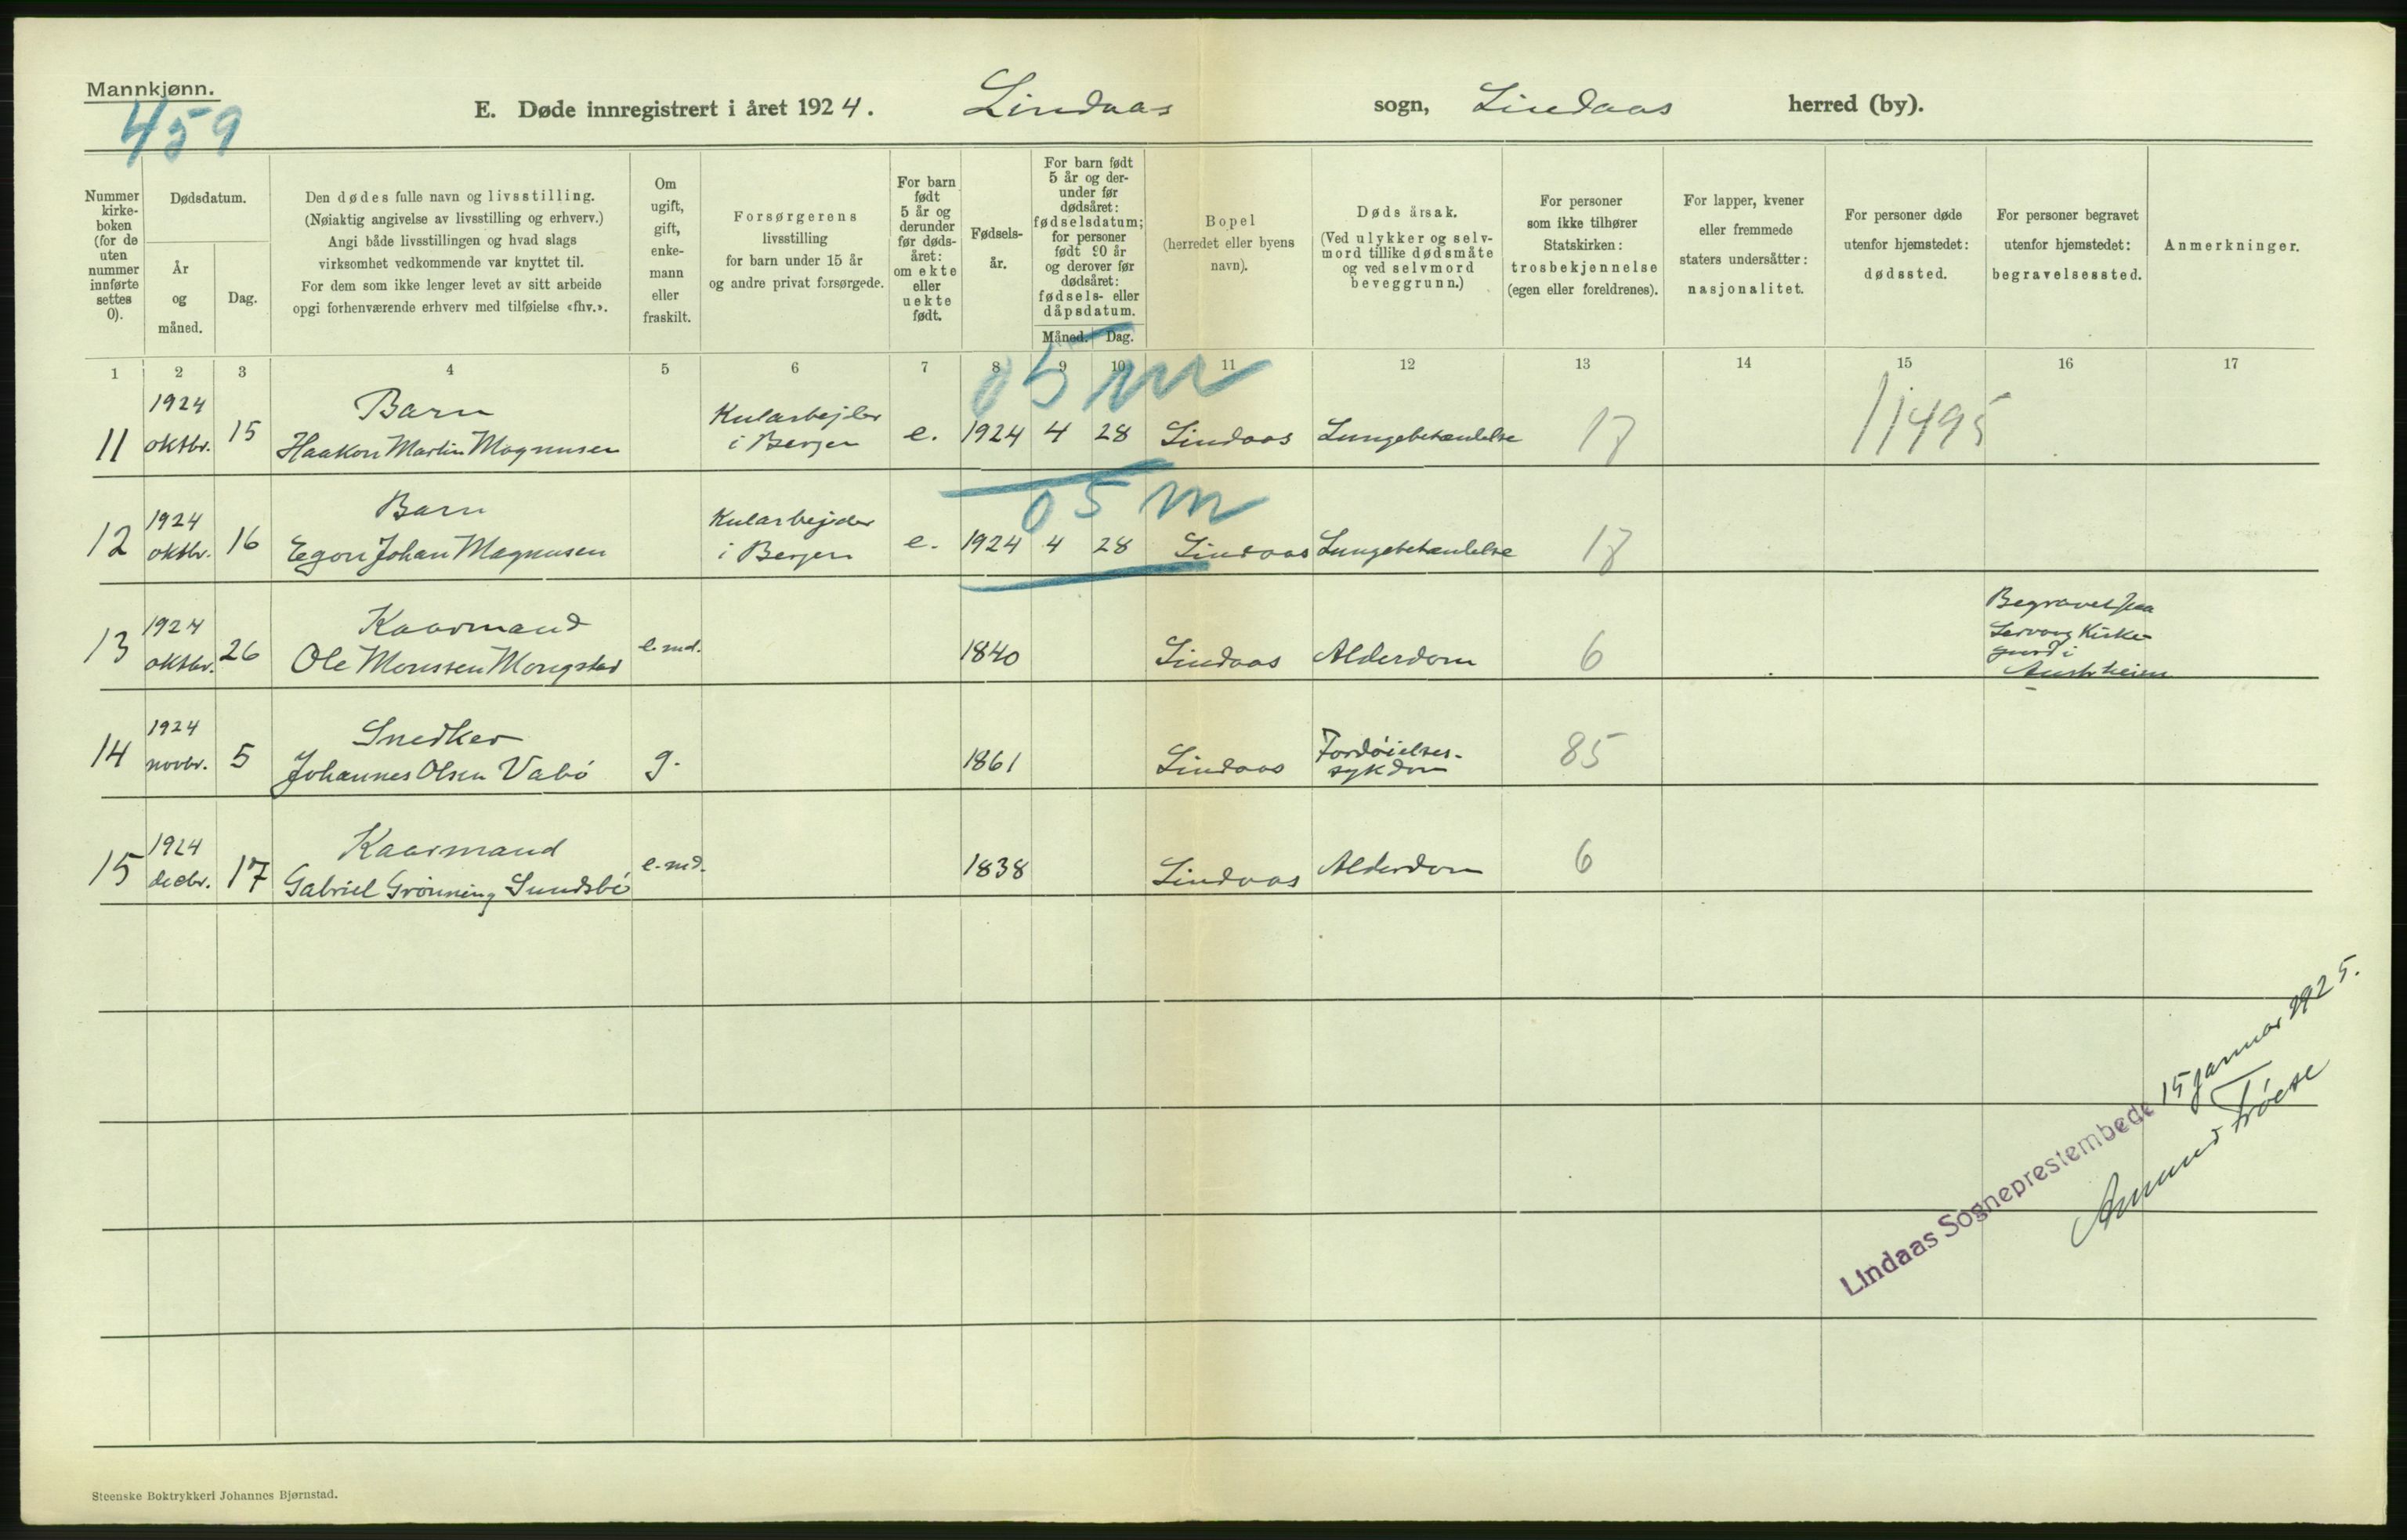 Mannkjønn.
459
E. Døde innregistrert i året 1924. Lindaas sogn, Lindaas herred (by).
Nummer
kirke-
boken
(for de
uten
nummer
innførte
settes
0).
Dødsdatum.
År
og
måned.
Dag.
Den dødes fulle navn og livsstilling.
(Nøiaktig angivelse av livsstilling og erhverv.)
Angi både livsstillingen og hvad slags
virksomhet vedkommende var knyttet til.
For dem som ikke lenger levet av sitt arbeide
opgi forhenværende erhverv med tilføielse «fhv.».
Om
ugift,
gift,
enke-
mann
eller
fraskilt.
Forsørgerens
livsstilling
for barn under 15 år
og andre privat forsørgede.
For barn
født
5 år og
derunder
før døds-
året:
om ekte
eller
uekte
født.
Fødsels-
år.
For barn født
5 år og der-
under før
dødsåret:
fødselsdatum;
for personer
født 90 år
og derover før
dødsåret:
fødsels- eller
dåpsdatum.
Måned. Dag.
Bopel
(herredet eller byens
navn).
Dødsårsak.
(Ved ulykker og selv-
mord tillike dødsmåte
og ved selvmord
beveggrunn.)
For personer
som ikke tilhører
Statskirken:
trosbekjennelse
(egen eller foreldrenes).
For lapper, kvener
eller fremmede
staters undersåtter:
nasjonalitet.
For personer døde
utenfor hjemstedet:
dødssted.
For personer begravet
utenfor hjemstedet:
begravelsessted.
Anmerkninger.
1 2 3 4 5 6 7 8 9 10 11 12 13 14 15 16 17
05 m
1924 Barn Kularbejder
11 oktbr. 15 Haakon Martin Magnusen i Bergen e. 1924 4 28 Lindaas Lungebetændelse 17 11495
05 m
1924 Barn Kularbejder
12 oktbr. 16 Egon Johan Magnusen i Bergen e. 1924 4 28 Lindaas Lungebetændelse 17
1924 Kaarmand Begravet paa
13 oktbr. 26 Ole Monssen Mongstad e.md. 1840 Lindaas Alderdom 6 Kirke-
gaard i
Austrheim
1924 Snedker Fordøielses-
14 novbr. 5 Johannes Olsen Vabö g. 1861 Lindaas sykdom 85
1924 Kaarmand
15 decbr. 17 Gabriel Grönning Sundsbö e.md. 1838 Lindaas Alderdom 6
Lindaas Sogneprestembede 15 januar 1925.
Steenske Boktrykkeri Johannes Bjørnstad.